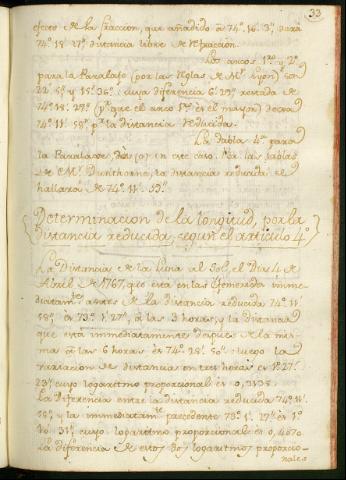 33
efecto de la fraccion, que añadido à 74°. 16'. 3", dará
74°. 18'. 27". distancia libre de refraccion.
Los arcos 1°. y 2°.
para la Paralaxe (por las reglas de Mr. Lyon) son
22'. 5". y 15'. 36". cuya diferencia 6'. 29". restada de
74°. 18'. 27". (pr. que el arco 1°. es el mayor) dexa
74°. 11'. 58". pr. la distancia reducida.
La tabla 4ª. para
la Paralaxe, en este caso. Por las tablas
de Mr. Dunthorne, la distancia reducida se
hallara de 74°. 11'. 53".
Determinacion de la longitud, por la
distancia reducida, segun el articulo 4°.
La Distancia de la Luna al Sol, el Dia 4 de
Abril de 1767, que está en las Efemerides imme-
diatamte. antes de la distancia reducida 74°. 11'.
58". es 73°. 1'. 27". à las 3 horas, y la distancia
que està immediatamente despues de la mis-
ma à las 6 horas es 74°. 28'. 50". luego la
variacion de distancia en tres horas es 1°. 27'.
23". cuyo logaritmo proporcional es 0,3138.
La Diferencia entre la distancia reducida 74°. 11'.
58". y la immediatamte. precedente 73°. 1'. 27". es 1°.
10'. 31". cuyo logaritmo proporcional es 0,4070.
La diferencia de estos dos logaritmos proporcio-
nales